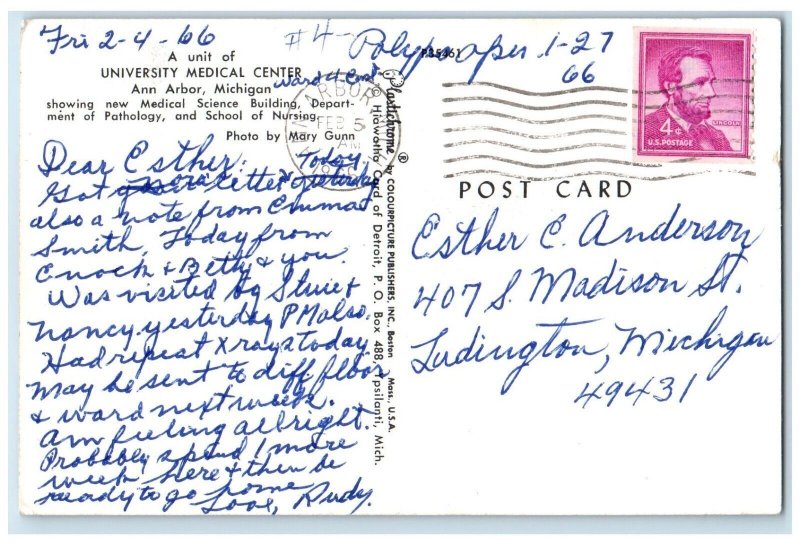 Fri 2-4-66
#4-
Polypaper 1-27
66
A unit of
UNIVERSITY MEDICAL CENTER
Ann Arbor, Michigan
Ward 4 East
showing new Medical Science Building, Depart-
ment of Pathology, and School of Nursing.
Photo by Mary Gunn
P35461
ARBOR
FEB 5
AM
4¢
LINCOLN
U.S. POSTAGE
Plastichrome ® by COLOURPICTURE PUBLISHERS, INC., Boston Mass., U.S.A.
© Hiawatha Card of Detroit, P. O. Box 488, Ypsilanti, Mich.
POST CARD
Dear Esther: Today,
Got letter yesterday
also a note from Emma
Smith, Today from
Enock & Betty & you.
Was visited by Stuie &
Nancy yesterday PM also.
Had repeat X rays today
May be sent to diff. floor
& ward next week.
Am feeling allright.
Probably spend 1 more
week here & then be
ready to go home
Love, Rudy.
Esther C. Anderson
407 S. Madison St.
Ludington, Michigan
49431